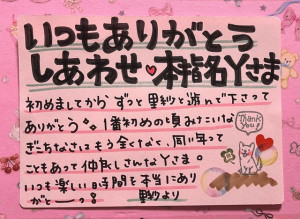 いつもありがとう
しあわせ♥本指名Yさま
初めましてから ずっと里紗と遊んで下さって
ありがとう。1番初めの頃みたいな
ぎこちなさはもう全くなく、同い年って
こともあって仲良しさんなYさま。
いつも楽しい時間を本当にあり
がとーっ!
里紗より
Thank
You!